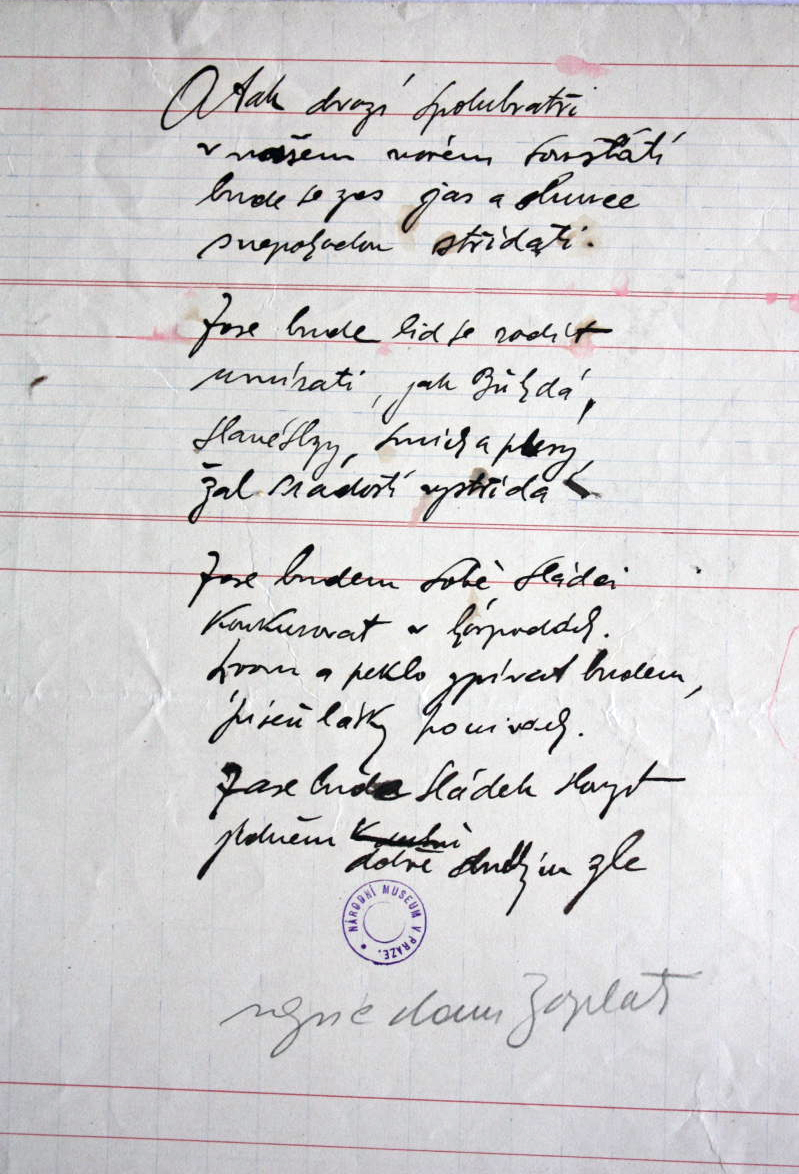 A tak drazí spolubratři
v našem novém soustátí
bude se zas jas a slunce
s nepohodou střídati.
Zase bude lid se rodit
umírati, jak Bůh dá,
slané slzy, smích a plesy,
žal s radostí vystřídá
Zase budem sobě, sládci
konkurovat v hospodách.
hrom a peklo zpívat budem,
píseň lásky po nivách.
Zase bude sládek slouž
jedněm
dobře druhým zle
NÁRODNÍ MUSEUM V PRAZE.
zaplať